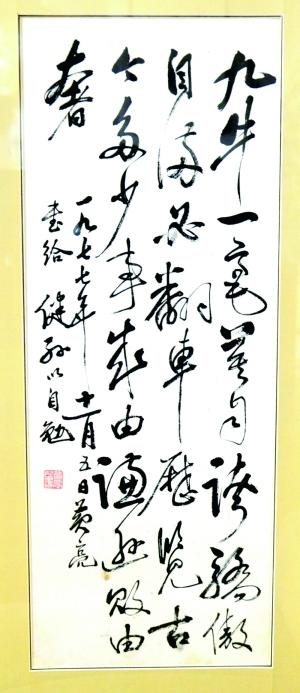 九牛一毫莫自誇驕傲
自满必翻車歷览古
今多少事成由谦逊败由
奢
一九七七年十一月五日黄亮
書给健孙以自勉